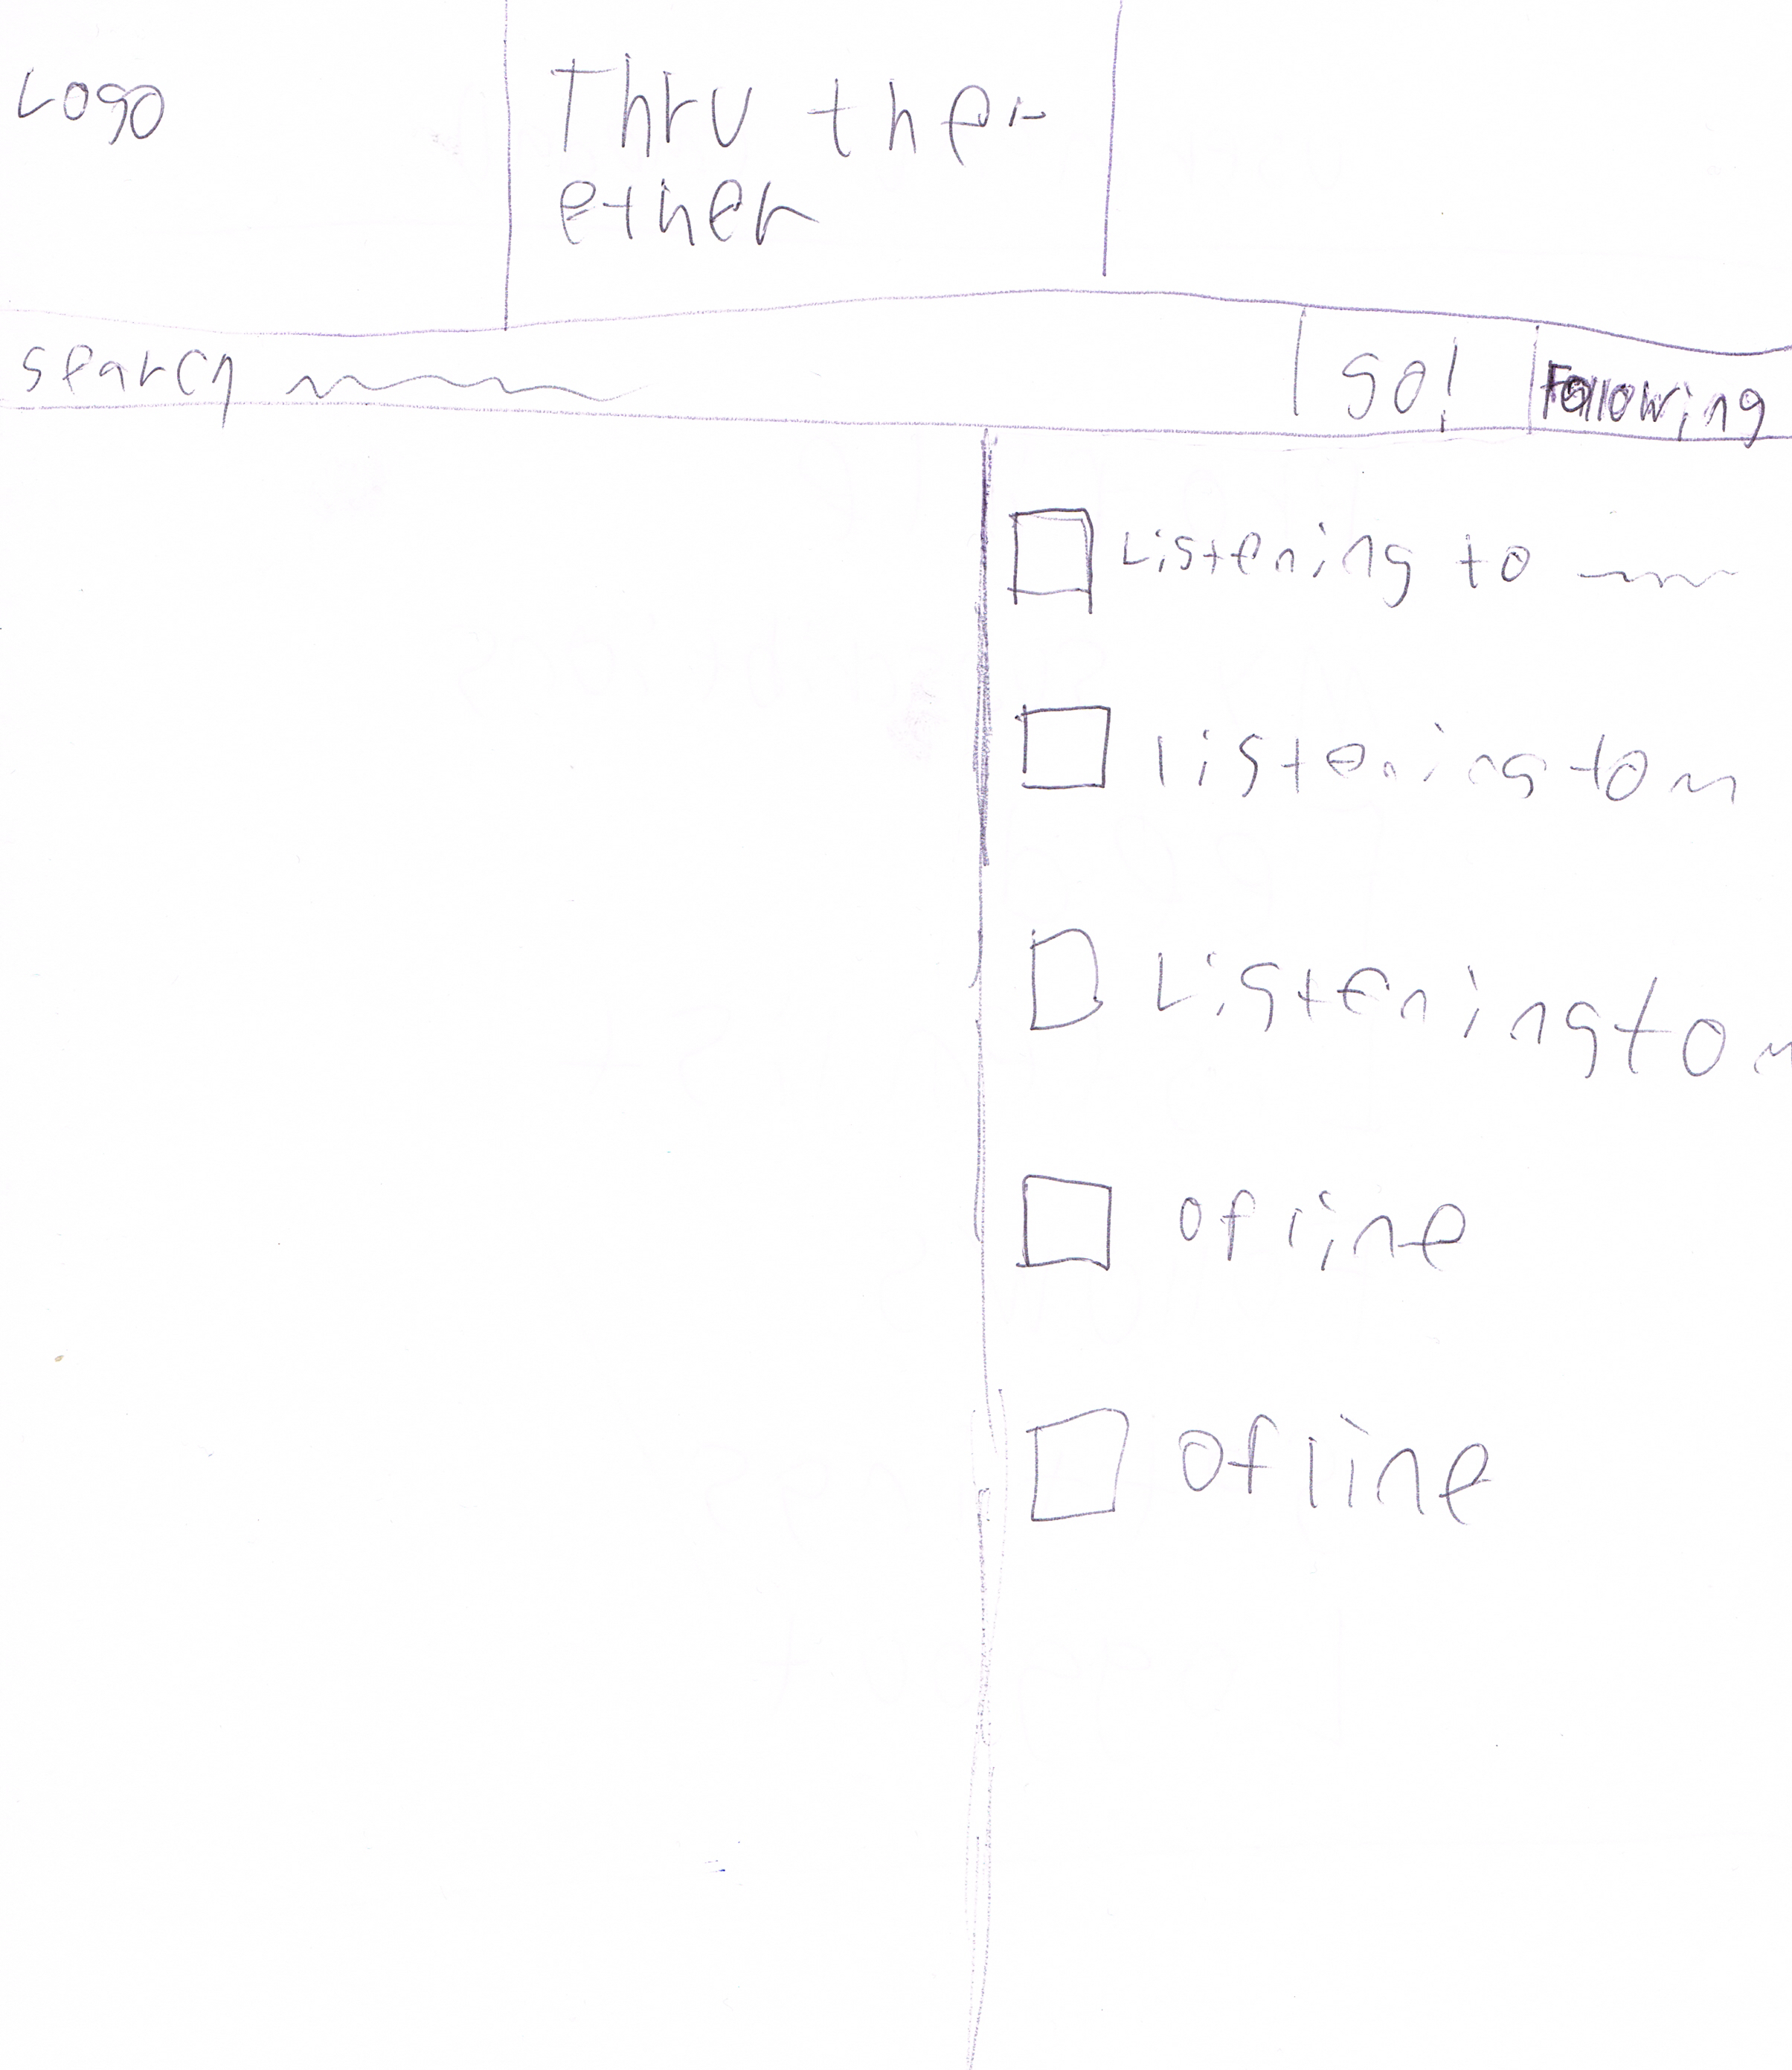 Logo
Thru the
ether
search
go!
Following
Listening to
listening to
Listening to
ofline
ofline